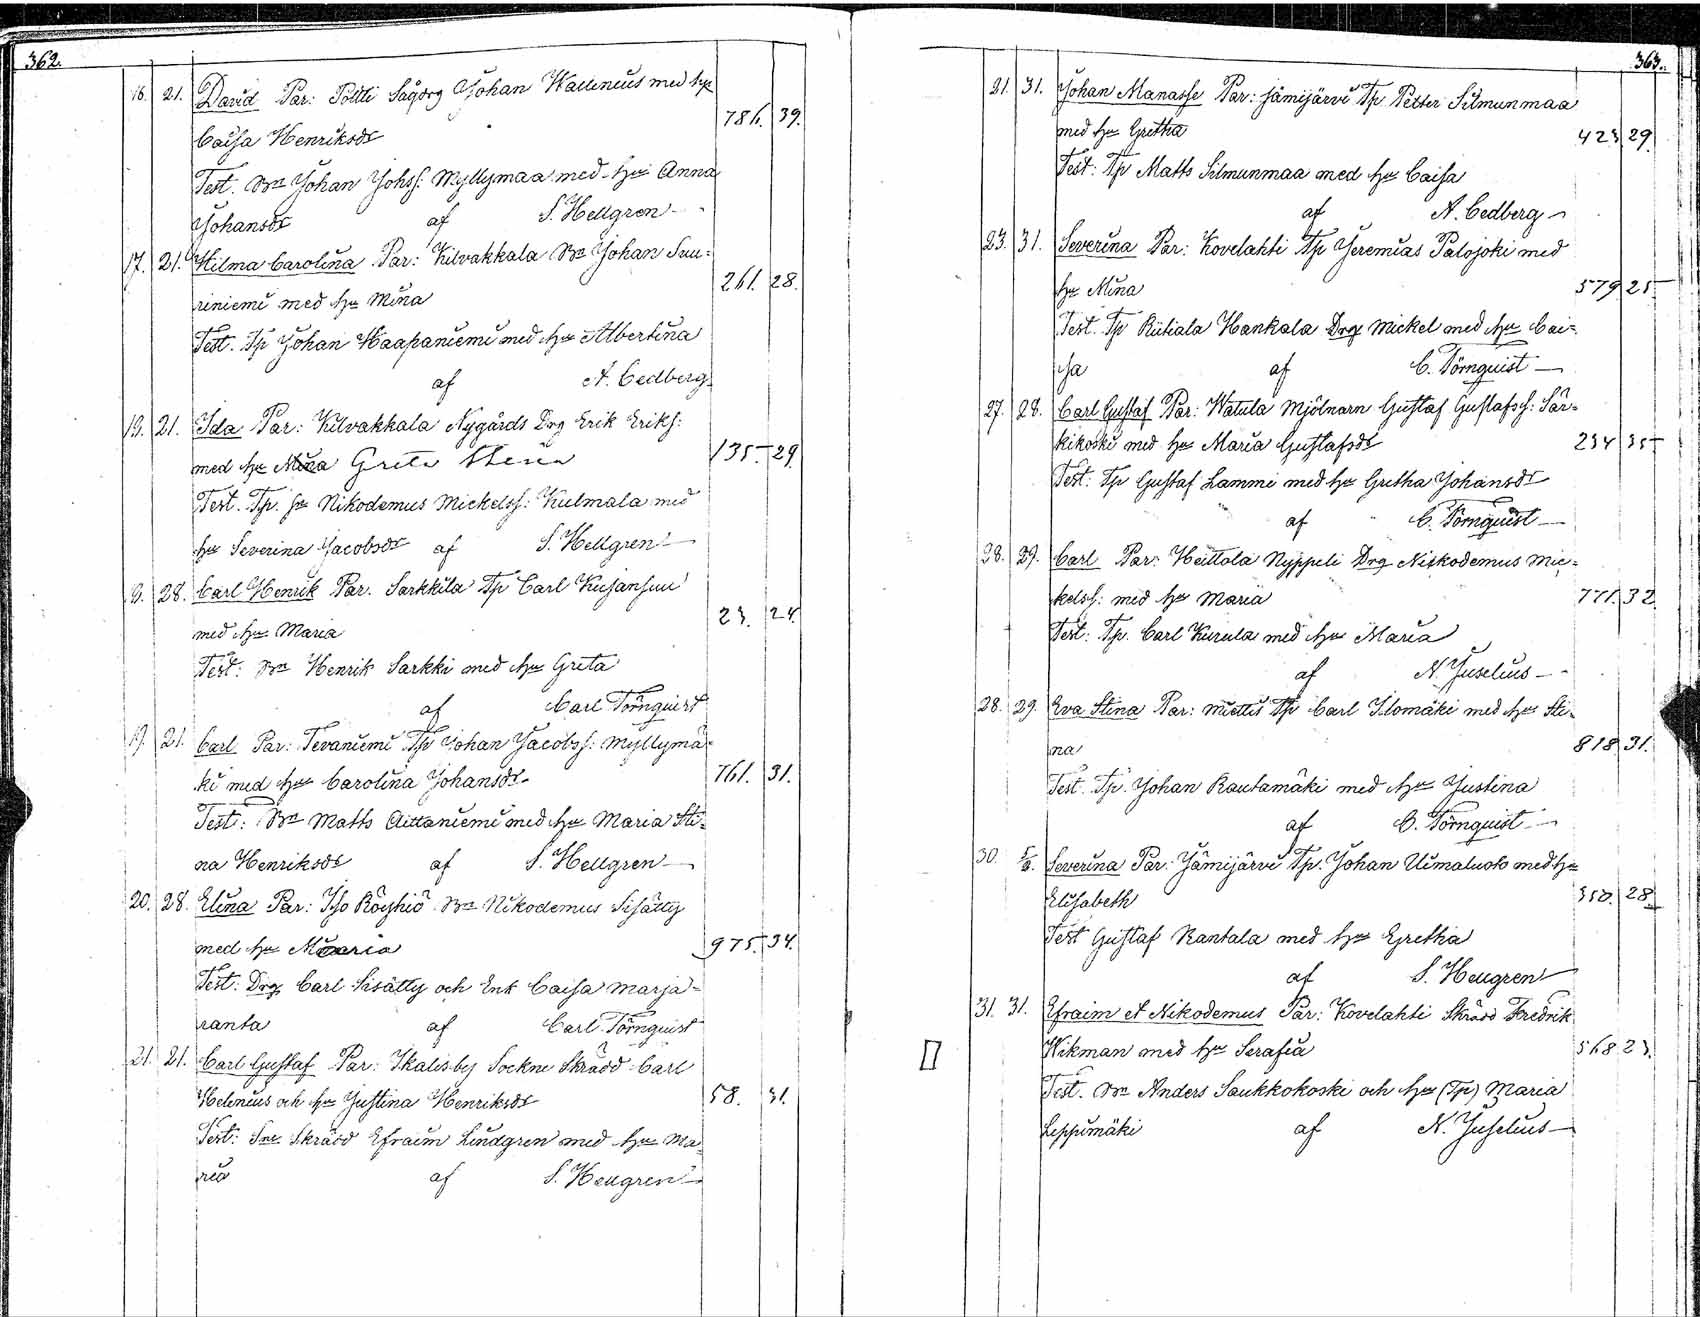 362.
16. 21. David Par: Poltti Sågdrg Johan Wallenius med hu
Caisa Henriksdr 786. 39.
Test. Bn Johan Johss: Myllymaa med hu Anna
Johansdr af S. Hellgren
17. 21. Hilma Carolina Par: Kilvakkala Bn Johan Suu=
riniemi med hu Mina 261. 28.
Test. Tp Johan Haapaniemi med hu Albertina
af A. Cedberg
19. 21. Ida Par: Kilvakkala Nygårds Drg Erik Eriks:
med hu Mina Greta Stina 135. 29.
Test. Tp. Sn Nikodemus Mickelss: Kulmala med
hu Severina Jacobsdr af S. Hellgren
28. Carl Henrik Par. Sarkkila Tp Carl Kujansuu
med hu Maria 23. 24.
Test: Bn Henrik Sarkki med hu Greta
af Carl Törnquist
19. 21. Carl Par: Tevaniemi Tp Johan Jacobss: Myllymä=
ki med hu Carolina Johansdr 761. 31.
Test: Bn Matts Aittaniemi med hu Maria Sti=
na Henriksdr af S. Hellgren
20. 28. Elina Par: Iso Röyhiö Bn Nikodemus Sisätty
med hu Maria 975. 34.
Test: Drg Carl Sisätty och Enk Caisa Marja=
ranta af Carl Törnquist
21. 21. Carl Gustaf Par: Ikalisby Sockne Skrädd Carl
Helenius och hu Justina Henriksdr 58. 31.
Test: Sne Skrädd Efraim Lindgren med hu Ma
ria af S. Hellgren
363.
21. 31. Johan Manasse Par: Jämijärvi Tp Petter Silmunmaa
med hu Gretha 423 29.
Test: Tp Matts Silmunmaa med hu Caisa
af A. Cedberg
23. 31. Severina Par: Kovelahti Tp Jeremias Palojoki med
hu Mina 579 25
Test. Tp Riitiala Hankala Drg Mickel med hu Cai=
sa af C. Törnquist
27. 28. Carl Gustaf Par: Watula Mjölnarn Gustaf Gustafss: Sär=
kikoski med hu Maria Gustafsdr 234 35
Test: Tp Gustaf Lammi med hu Gretha Johansdr
af C. Törnquist
28. 29. Carl Par: Heittola Nyppeli Drg Nikodemus Mic=
kelss: med hu Maria 771. 32.
Test: Tp. Carl Kurula med hu Maria
af N. Juselius
28. 29 Eva Stina Par: Miettis Tp Carl Ilomäki med hu Sti=
na 818 31.
Test. Tp. Johan Rautamäki med hu Justina
af C. Törnquist
30. Severina Par: Jämijärvi Tp. Johan Uimaluoto med hu
Elisabeth 350. 28.
Test Gustaf Rantala med hu Gretha
af S. Hellgren
31. 31. Efraim et Nikodemus Par: Kovelahti Skrädd Fredrik
Wikman med hu Serafia 568 23.
Test. Bn Anders Saukkokoski och hu (Tp) Maria
Leppimäki af N. Juselius